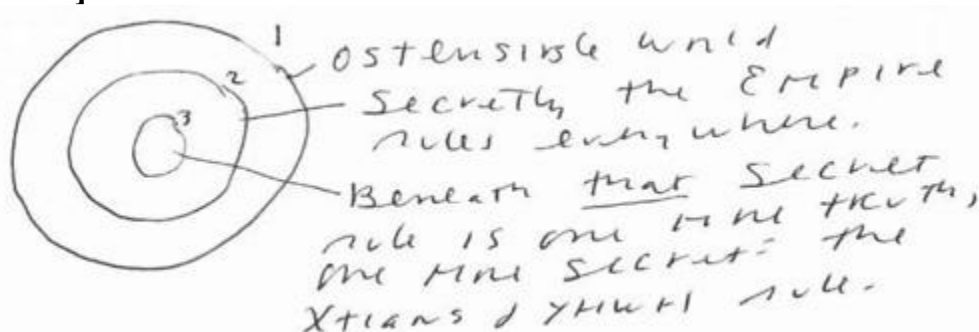 1
Ostensible world
2
Secretly the Empire
rules everywhere.
3
Beneath that secret
rule is one more truth,
one more secret: the
Xtians & YHWH rule.